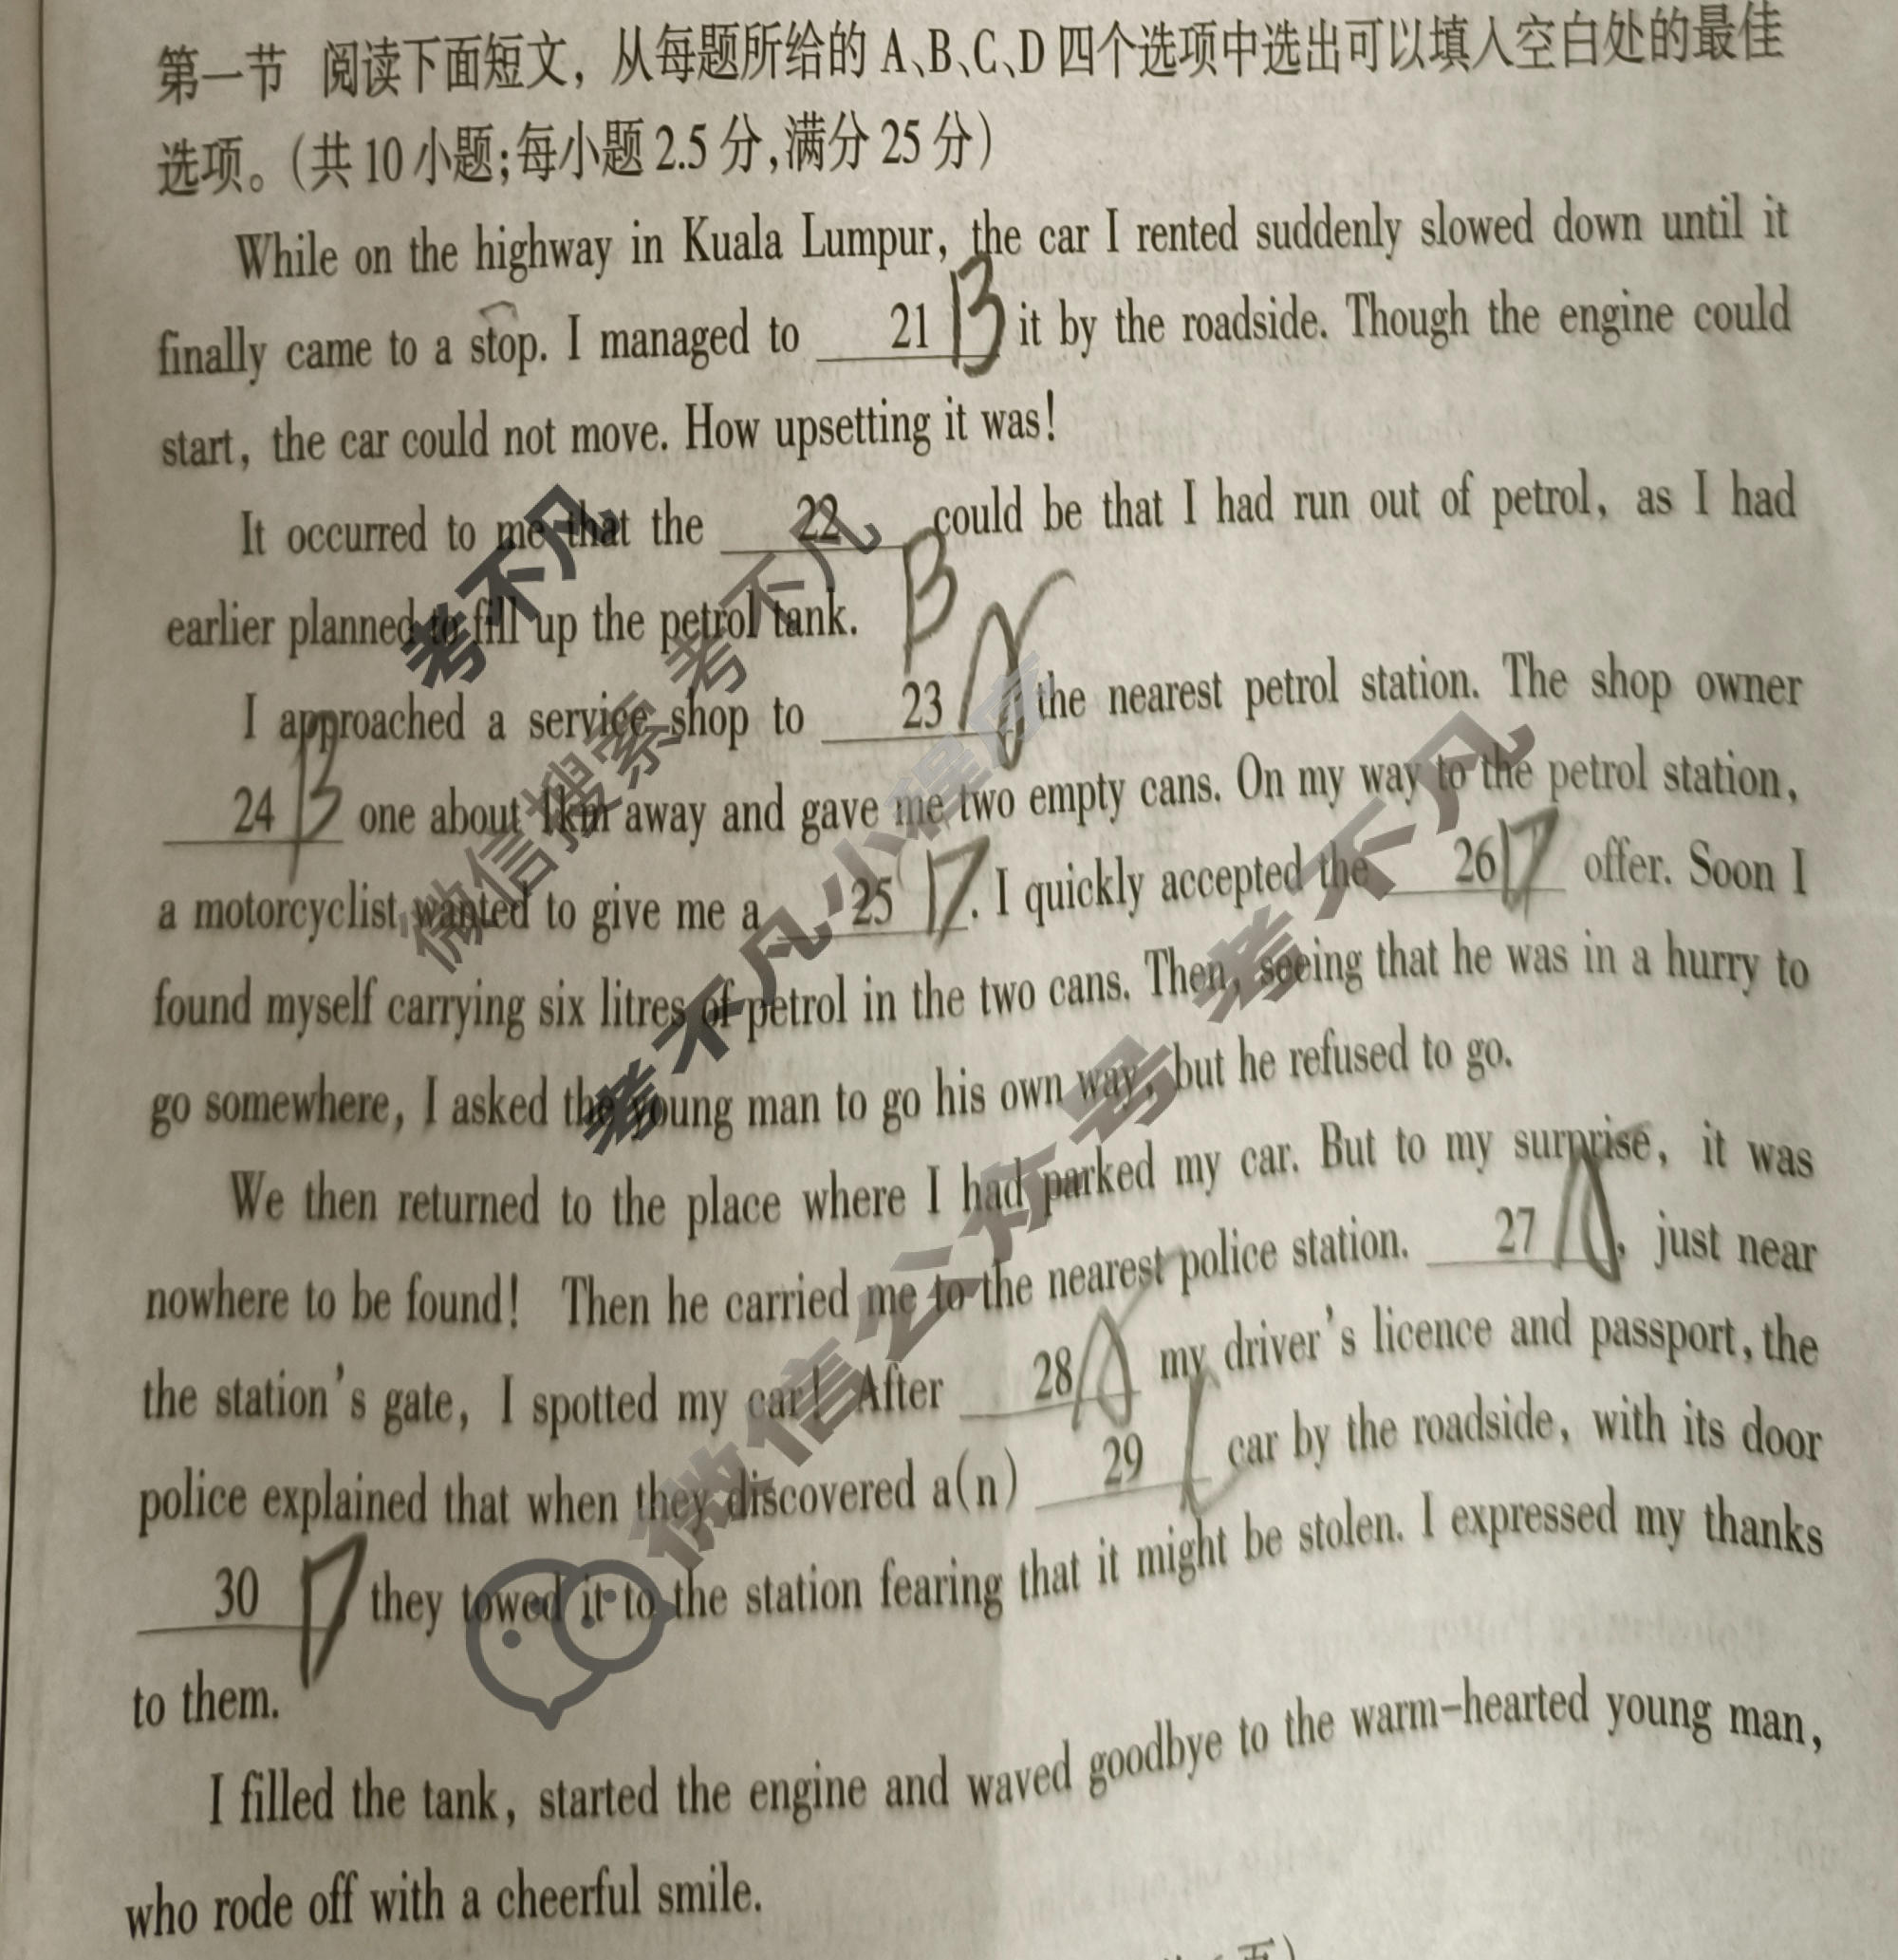 第一节 阅读下面短文，从每题所给的 A、B、C、D 四个选项中选出可以填入空白处的最佳
选项。(共 10 小题;每小题 2.5 分,满分 25 分)
While on the highway in Kuala Lumpur, the car I rented suddenly slowed down until it
finally came to a stop. I managed to 21 B it by the roadside. Though the engine could
start, the car could not move. How upsetting it was!
It occurred to me that the 22 could be that I had run out of petrol, as I had
B
earlier planned to fill up the petrol tank.
I approached a service shop to 23 the nearest petrol station. The shop owner
24 B one about 1km away and gave me two empty cans. On my way to the petrol station,
a motorcyclist wanted to give me a 25 D. I quickly accepted the 26 D offer. Soon I
found myself carrying six litres of petrol in the two cans. Then, seeing that he was in a hurry to
go somewhere, I asked the young man to go his own way, but he refused to go.
We then returned to the place where I had parked my car. But to my surprise, it was
nowhere to be found! Then he carried me to the nearest police station. 27 A, just near
the station's gate, I spotted my car! After 28 A my driver's licence and passport, the
police explained that when they discovered a(n) 29 C car by the roadside, with its door
30 D, they towed it to the station fearing that it might be stolen. I expressed my thanks
to them.
I filled the tank, started the engine and waved goodbye to the warm-hearted young man,
who rode off with a cheerful smile.
考不凡
微信搜索 考不凡
考不凡小程序
微信公众号 考不凡